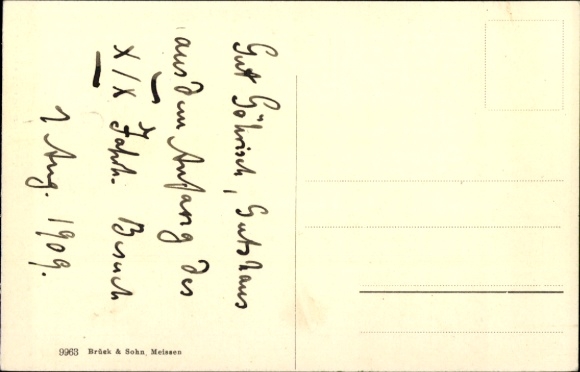 Gut Göhrisch, Gutshaus
aus dem Anfang des
X/X Jahrh. Besuch
1 Aug. 1909.
9963 Brück & Sohn, Meissen